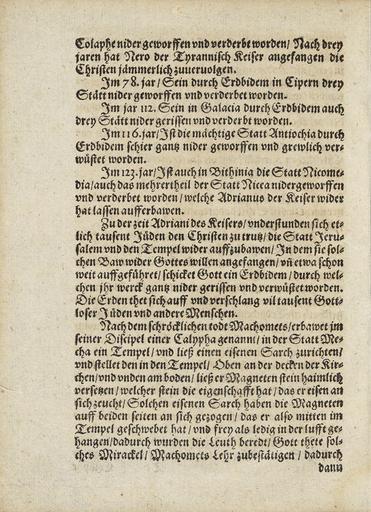 Colaphe nider geworffen vnd verderbt worden/ Nach drey
jaren hat Nero der Tyrannisch Keiser angefangen die
Christen jämmerlich zuueruolgen.
Im 78. jar/ Sein durch Erdbidem in Cipern drey
Stätt nider geworffen vnd verderbet worden.
Im jar 112. Sein in Galacia durch Erdbidem auch
drey Stätt nider gerissen vnd verderbt worden.
Im 116. jar/ Ist die mächtige Statt Antiochia durch
Erdbidem schier gantz nider geworffen vnd grewlich ver-
wüstet worden.
Im 123. jar/ Ist auch in Bithinia die Statt Nicome-
dia/ auch das mehrertheil der Statt Nicea nidergeworffen
vnd verderbet worden/ welche Adrianus der Keiser wider
hat lassen aufferbawen.
Zu der zeit Adriani des Keisers/ vnderstunden sich et-
lich tausent Jüden den Christen zu trutz/ die Statt Jeru-
salem vnd den Tempel wider auffzubawen/ In dem sie sol-
chen Baw wider Gottes willen angefangen/ vñ etwa schon
weit auffgeführet/ schicket Gott ein Erdbidem/ durch wel-
chen jhr werck gantz nider gerissen vnd verwüstet worden.
Die Erden thet sich auff vnd verschlang vil tausent Gott-
loser Jüden vnd andere Menschen.
Nach dem schröcklichen todt Machomets/ erbawet jm
seiner Discipel einer Calypha genannt/ in der Statt Me-
cha ein Tempel/ vnd ließ einen eisenen Sarch zurichten/
vnd stellet den in den Tempel/ Oben an der decken der Kir-
chen/ vnd vnden am boden/ ließ er Magneten stein haimlich
versetzen/ welcher stein die eigenschafft hat/ das er eisen an
sich zeucht/ Solchen eisenen Sarch haben die Magneten
auff beiden seiten an sich gezogen/ das er also mitten im
Tempel geschwebet hat/ vnd frey als ledig in der lufft ge-
hangen/ dadurch wurden die Leuth beredt/ Gott thete sol-
ches Mirackel/ Machomets Lehr zubestätigen/ dadurch
dann